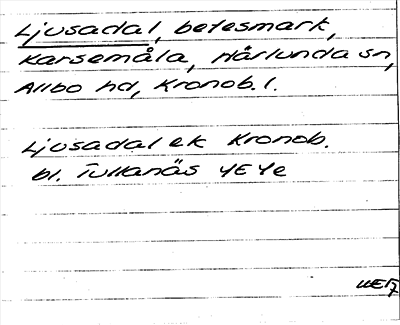 Ljusadal, betesmark,
Karsemåla, Härlunda sn,
Allbo hd, Kronob. l.
Ljusadal ek Kronob.
bl. Tullanäs 4E4e